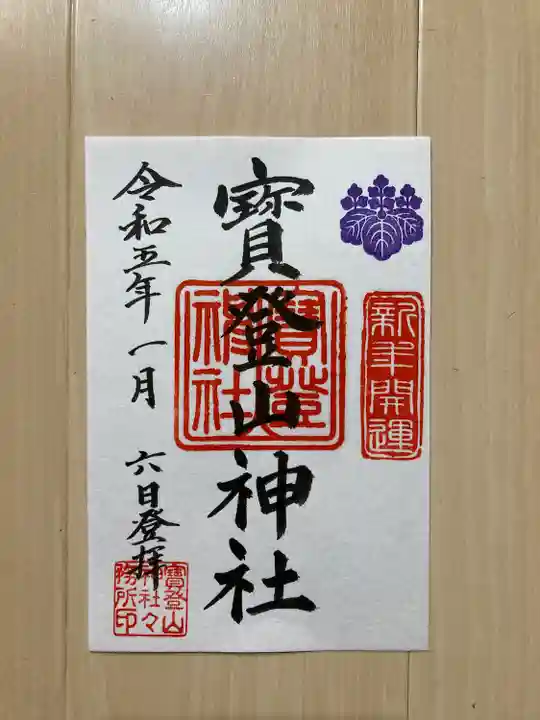 新年開運
寳登山神社
寳登
神社
令和五年一月六日登拝
寳登山
神社々
務所印